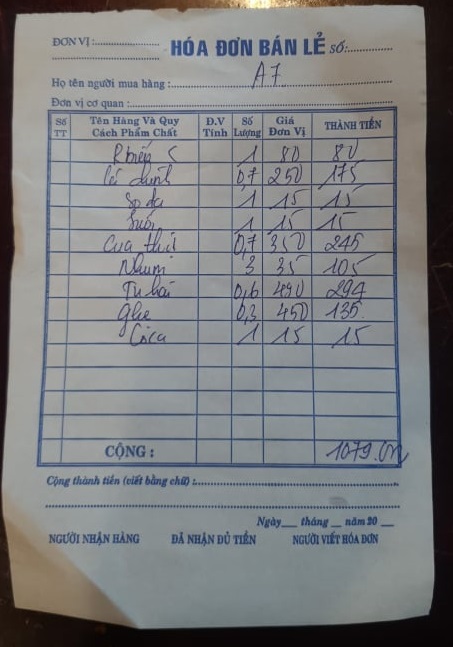 ĐƠN VỊ :
HÓA ĐƠN BÁN LẺ SỐ:
Họ tên người mua hàng : A7
Đơn vị cơ quan :
Số TT Tên Hàng Và Quy Cách Phẩm Chất Đ.V Tính Số Lượng Giá Đơn Vị THÀNH TIỀN
1 80 80
0,7 250 175
Sođa 1 15 15
Suối 1 15 15
Cua thịt 0,7 350 245
Nhum 3 35 105
Tu hài 0,6 490 294
Ghẹ 0,3 450 135
Coca 1 15 15
CỘNG : 1079.000
Cộng thành tiền (viết bằng chữ) :
Ngày tháng năm 20
NGƯỜI NHẬN HÀNG ĐÃ NHẬN ĐỦ TIỀN NGƯỜI VIẾT HÓA ĐƠN